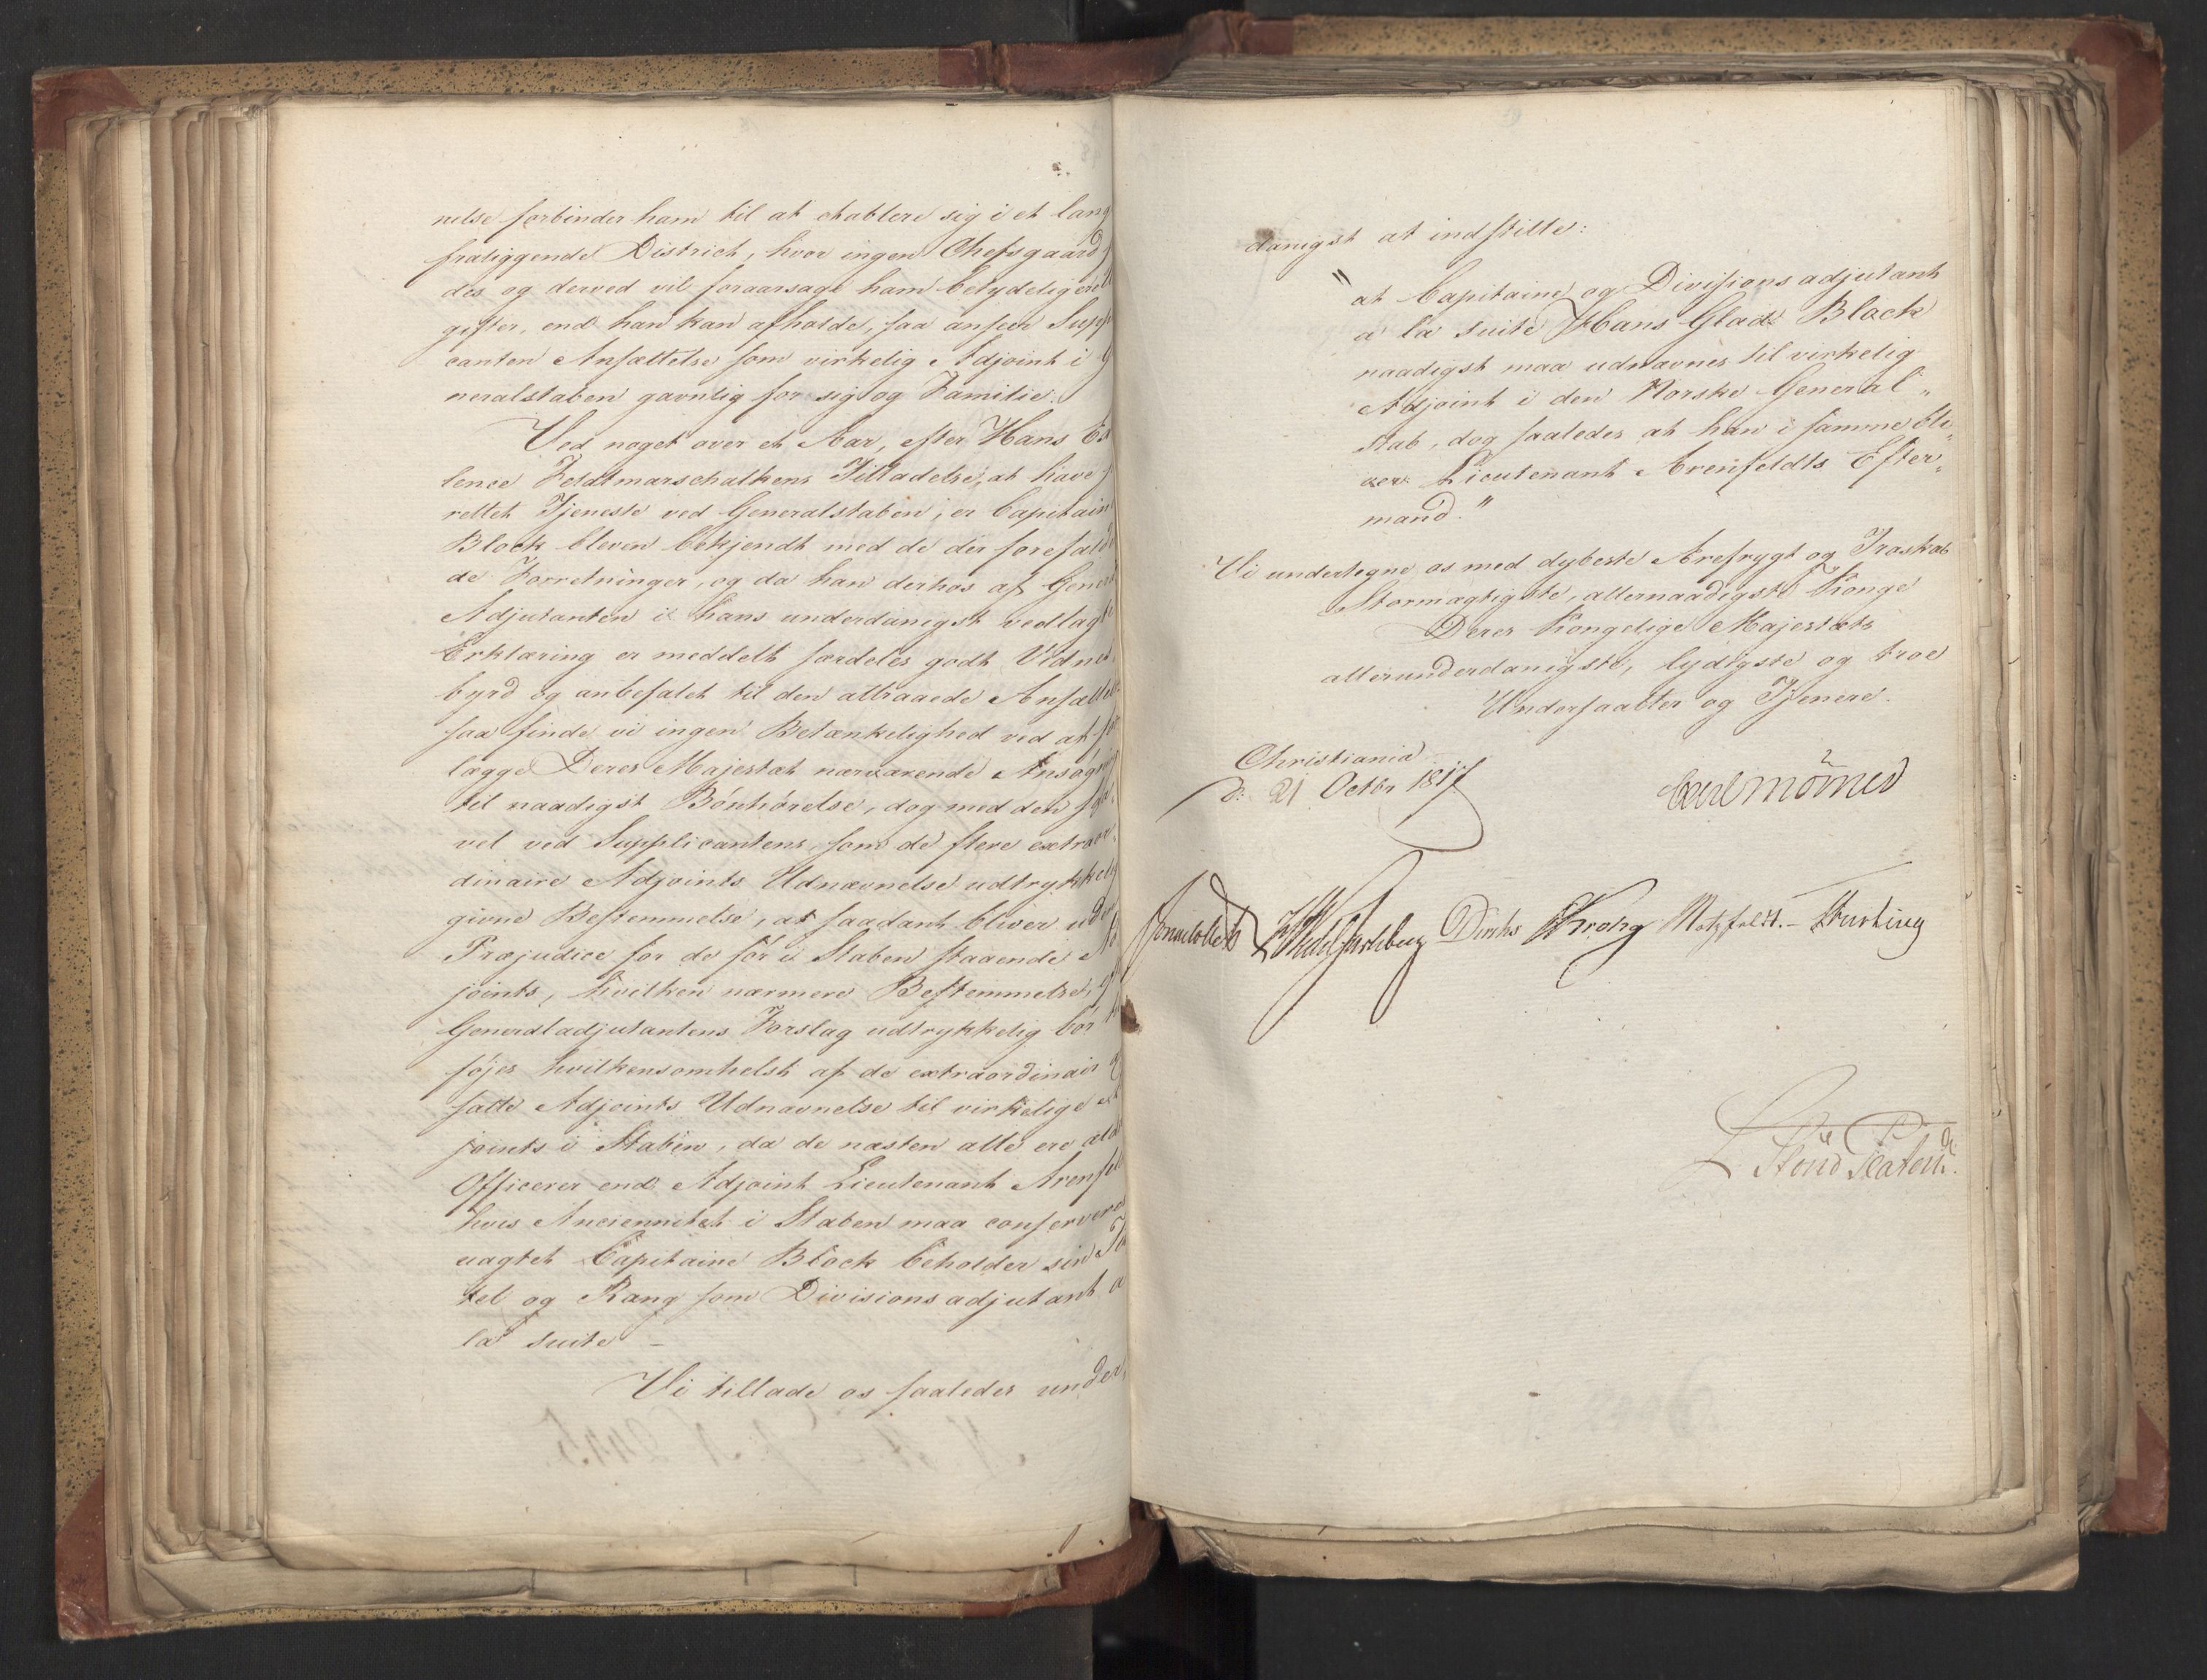 nelse forbinder ham til at etablere sig i et lang
fraliggende District, hvor ingen Chefsgaard
des og derved vil foraarsage ham betydeligere
gifter, end han kan afholde, saa anseer Supp
canten Ansættelse som virkelig Adjoint i
neralstaben gavnlig for sig og Familie.
Ved noget over et Aar, efter Hans Ex
lence Feldtmarschalkens Tilladelse, at have
rettet Tjeneste ved Generalstaben, er Capitain
Block bleven bekjendt med de der forefald
de Forretninger, og da han derhos af Gene
Adjutanten i hans underdanigst vedlagte
Erklæring er meddelt særdeles godt Vidnes
byrd og anbefalet til den attraaede Ansættel
saa finde vi ingen Betænkelighed ved at
lægge Deres Majestæt nærværende Ansøg
til naadigst Bønhørelse, dog med den
vel ved Supplicantens, som de flere extraor
dinaire Adjoints Udnævnelse udtrykkelig
givne Bestemmelse, at saadant bliver uden
Præjudice for de før i Staben staaende
joints, hvilken nærmere Bestemmelse,
Generaladjutantens Forslag udtrykkelig bør
føjes hvilkensomhelst af de extraordinair
satte Adjoints Udnævnelse til virkelige
joints i Staben, da de næsten alle ere æld
Officerer end Adjoint Lieutenant Arenfel
hvis Anciennitet i Staben maa conserveres
uagtet Capitaine Block beholder sin Ti
tel og Rang som Divisionsadjutant a
la suite –
Vi tillade os saaledes under
danigst at indstille:
"at Capitaine og Divisionsadjutant
a la suite Hans Glad Block
naadigst maa udnævnes til virkelig
Adjoint i den Norske General„
stab, dog saaledes at han i samme bli„
ver Lieutenant Arenfeldts Efter„
mand."
Vi undertegne os med dybeste Ærefrygt og Troskab
Stormægtigste, allernaadigste Konge
Deres Kongelige Majestæts
allerunderdanigste, lydigste og troe
Undersaatter og Tjenere.
Christiania
d: 21 Octbr 1817
Carl Mörner
Sommelhielm Diriks Krohg Motzfeldt.